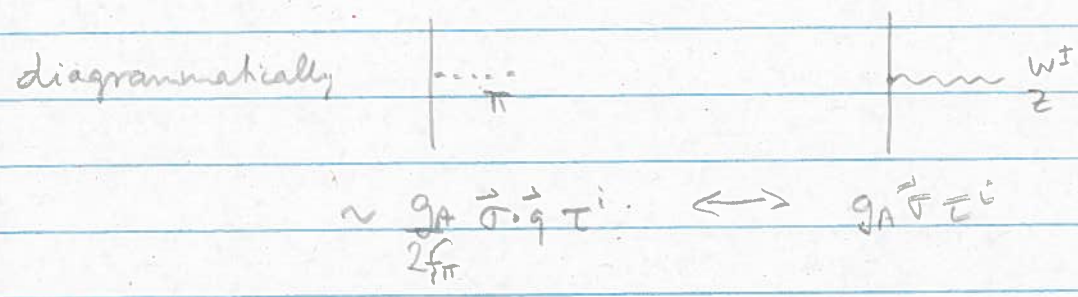 diagrammatically π W± Z
~ g_A/2f_π σ⃗·q⃗ τ^i. ⟷ g_A σ⃗ τ^i